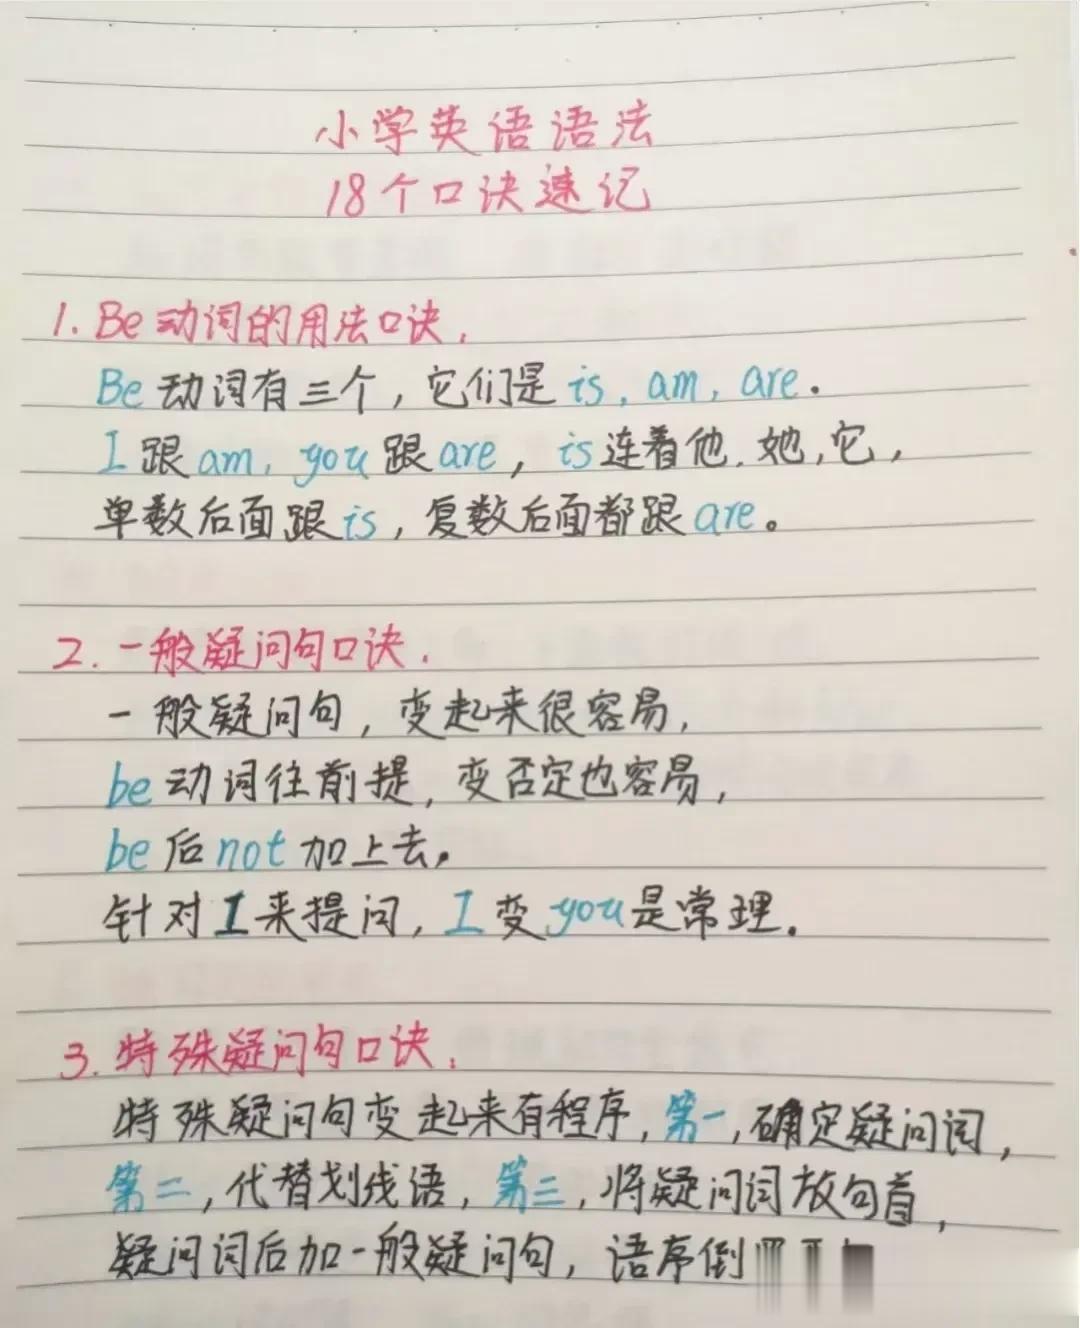 小学英语语法
18个口诀速记
1. Be动词的用法口诀.
Be动词有三个，它们是is, am, are.
I跟am, you跟are, is连着他.她,它,
单数后面跟is, 复数后面都跟are。
2. 一般疑问句口诀.
一般疑问句，变起来很容易,
be动词往前提, 变否定也容易,
be后not加上去.
针对I来提问, I变you是常理.
3. 特殊疑问句口诀.
特殊疑问句变起来有程序, 第一, 确定疑问词,
第二, 代替划线语, 第三, 将疑问词放句首,
疑问词后加一般疑问句, 语序倒